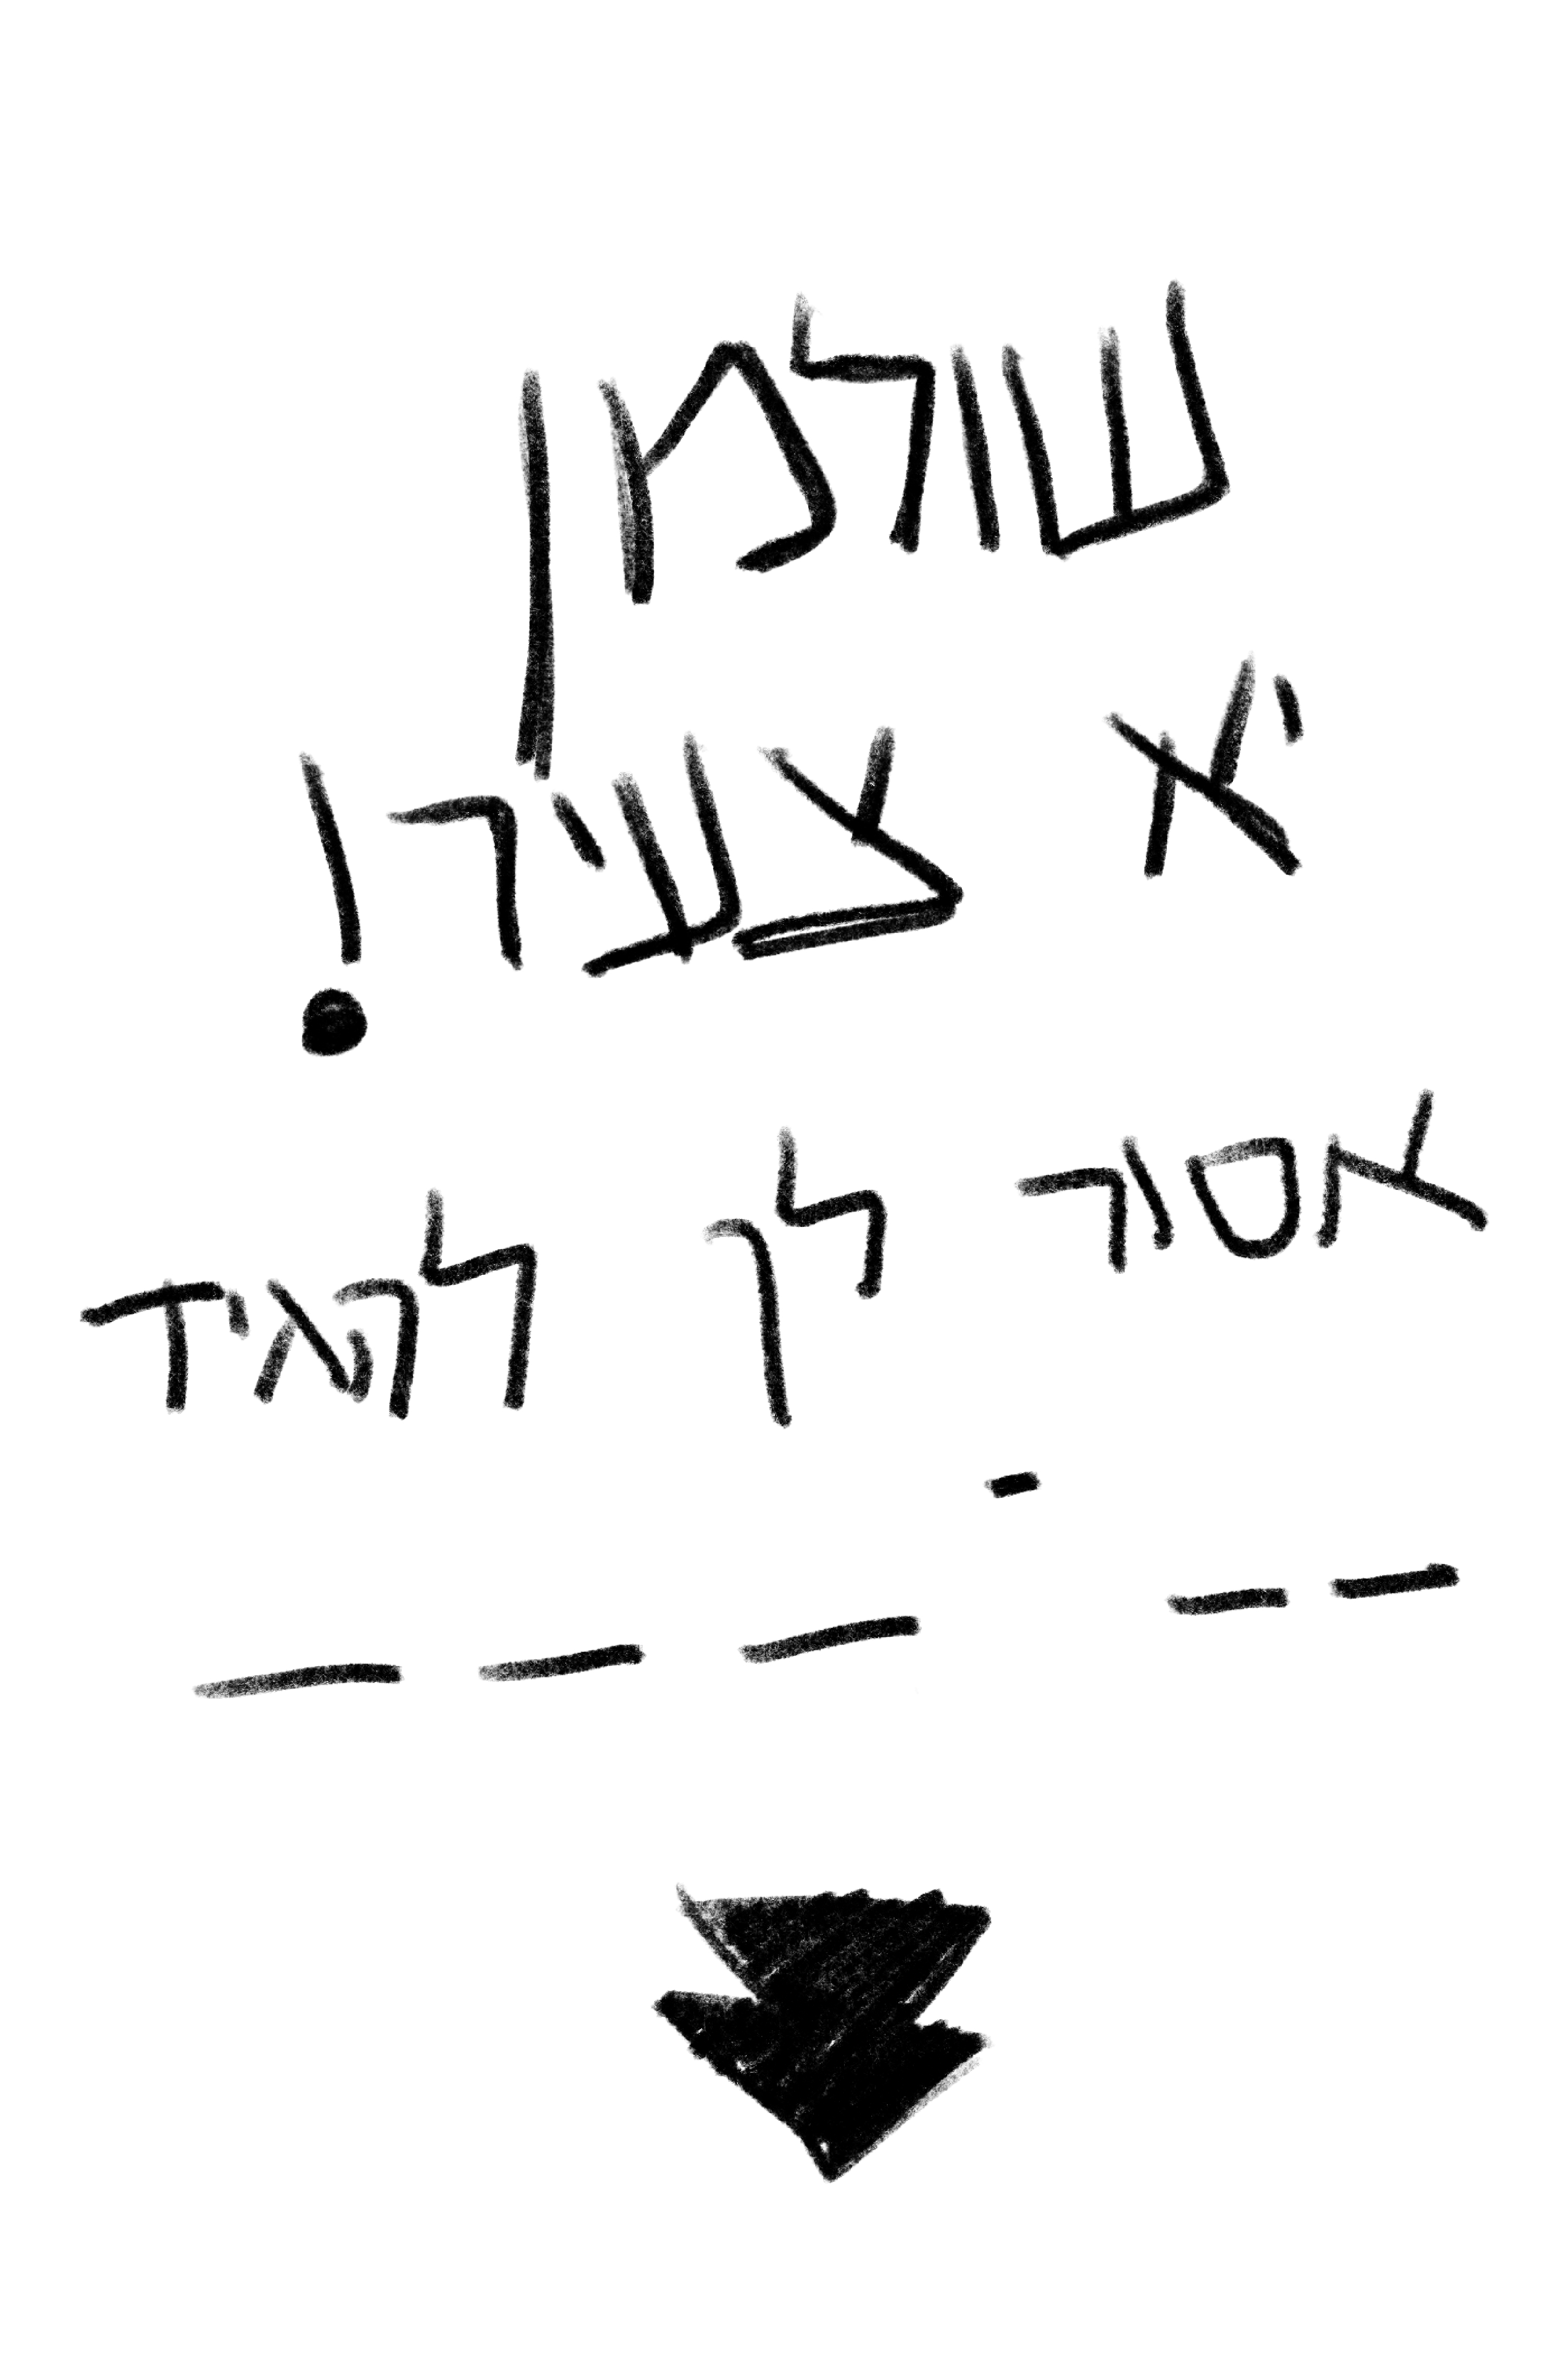 שולמן
יא צעיר!
אסור לך להגיד
־
_ _ _ _ _